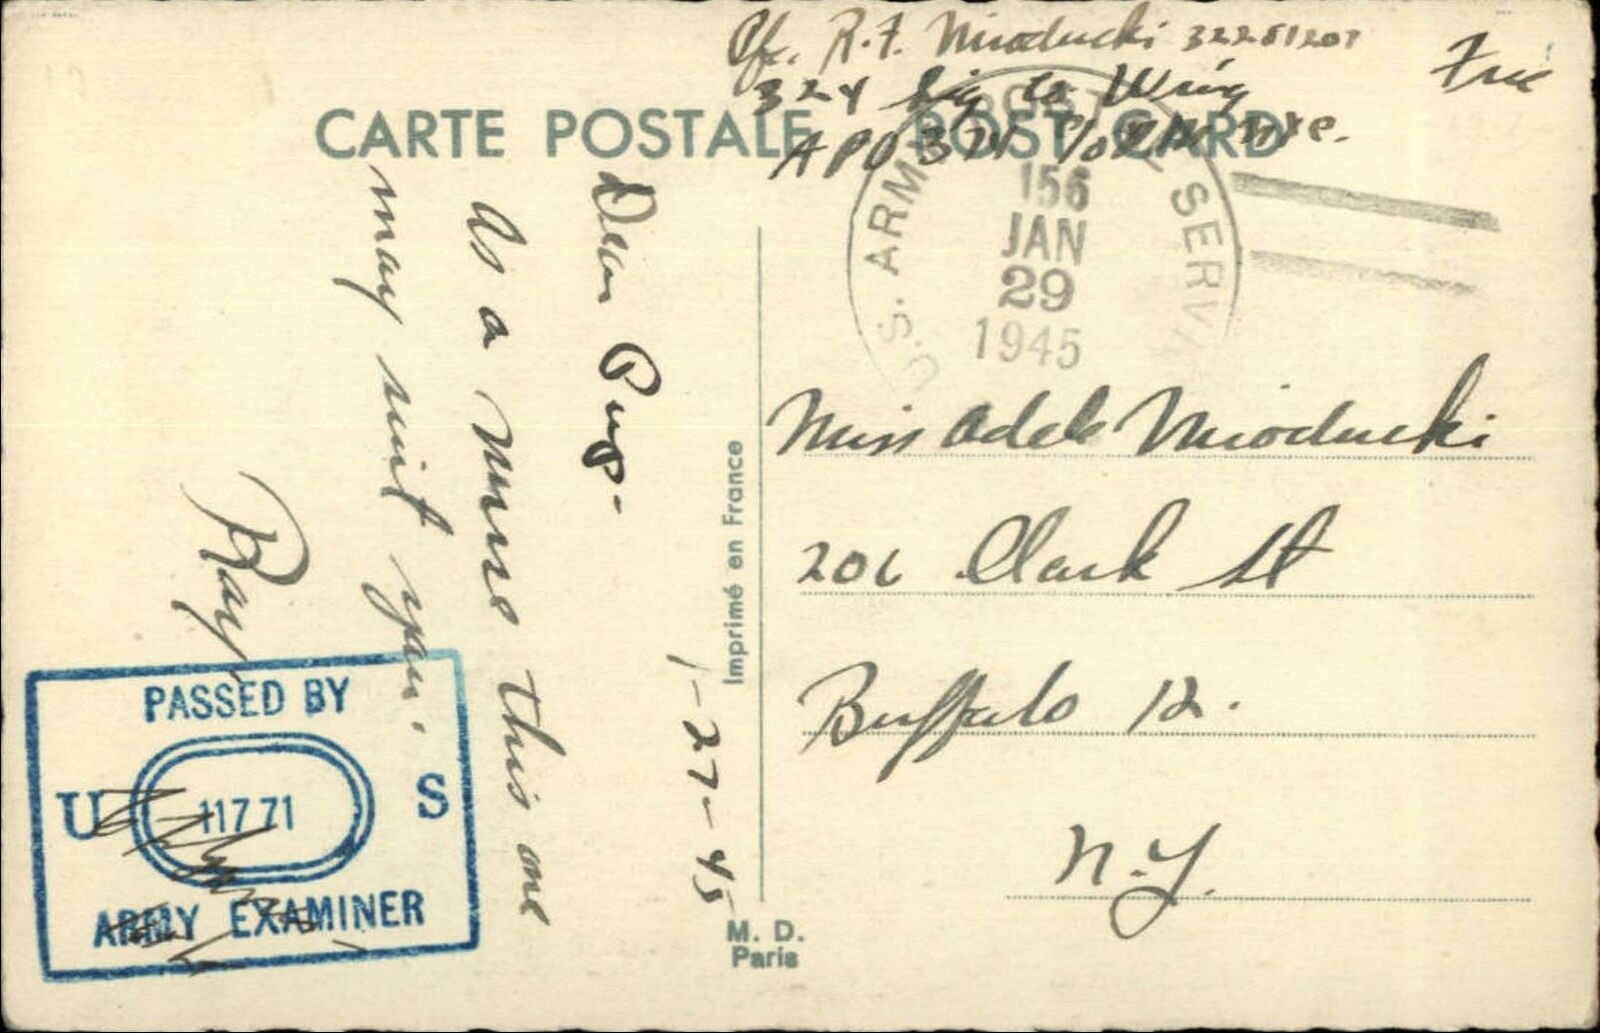 Pfc. R.F. Mioducki 32251207
324 Sig Co Wing
APO 374 c/o PM NYC.
Free
CARTE POSTALE POST CARD
U.S. ARMY POSTAL SERVICE
156
JAN
29
1945
1-27-45
Dear Pug-
As a nurse this one
may suit you.
Ray
Imprimé en France
M. D.
Paris
Miss Adele Mioducki
206 Clark St
Buffalo 12.
N.Y.
PASSED BY
U 11771 S
ARMY EXAMINER